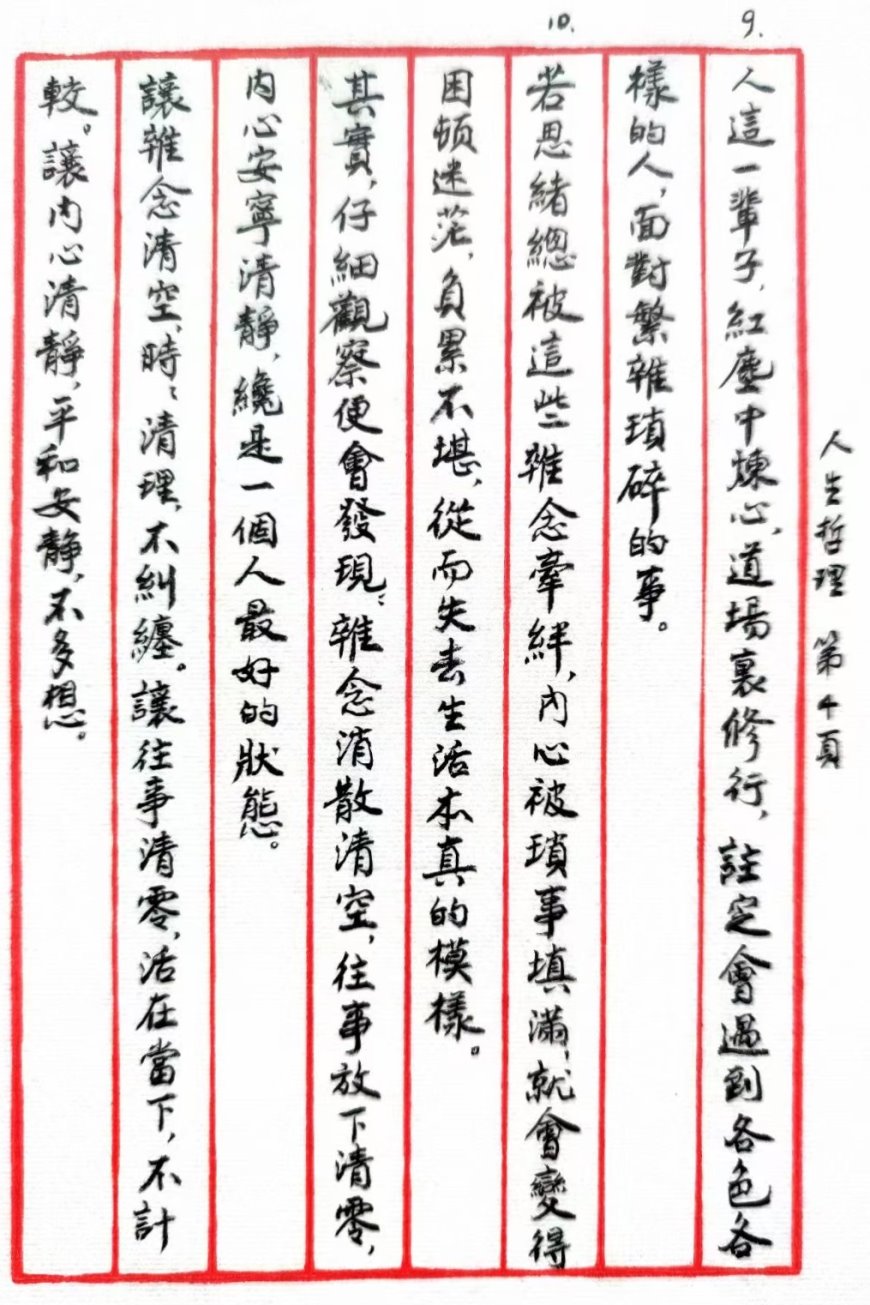 人生哲理 第4頁
9.
人這一輩子,紅塵中煉心,道場裏修行,註定會遇到各色各
樣的人,面對繁雜瑣碎的事。
10.
若思緒總被這些雜念牽絆,內心被瑣事填滿,就會變得
困頓迷茫,負累不堪,從而失去生活本真的模樣。
其實,仔細觀察便會發現:雜念消散清空,往事放下清零,
内心安寧清靜,纔是一個人最好的狀態。
讓雜念清空,時:清理,不糾纏。讓往事清零,活在當下,不計
較。讓内心清靜,平和安靜,不多想。